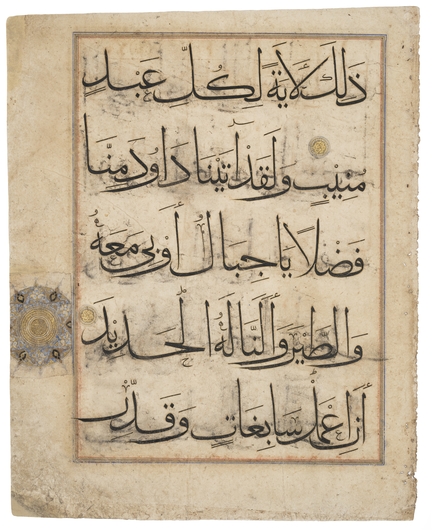 ذَلِكَ لَآيَةً لِكُلِّ عَبْدٍ
مُنِيبٍ وَلَقَدْ اٰتَيْنَا دَاوُدَ مِنَّا
فَضْلًا يَا جِبَالُ أَوِّبِي مَعَهُ
وَالطَّيْرَ وَأَلَنَّا لَهُ الْحَدِيدَ
أَنِ اعْمَلْ سَابِغَاتٍ وَقَدِّرْ